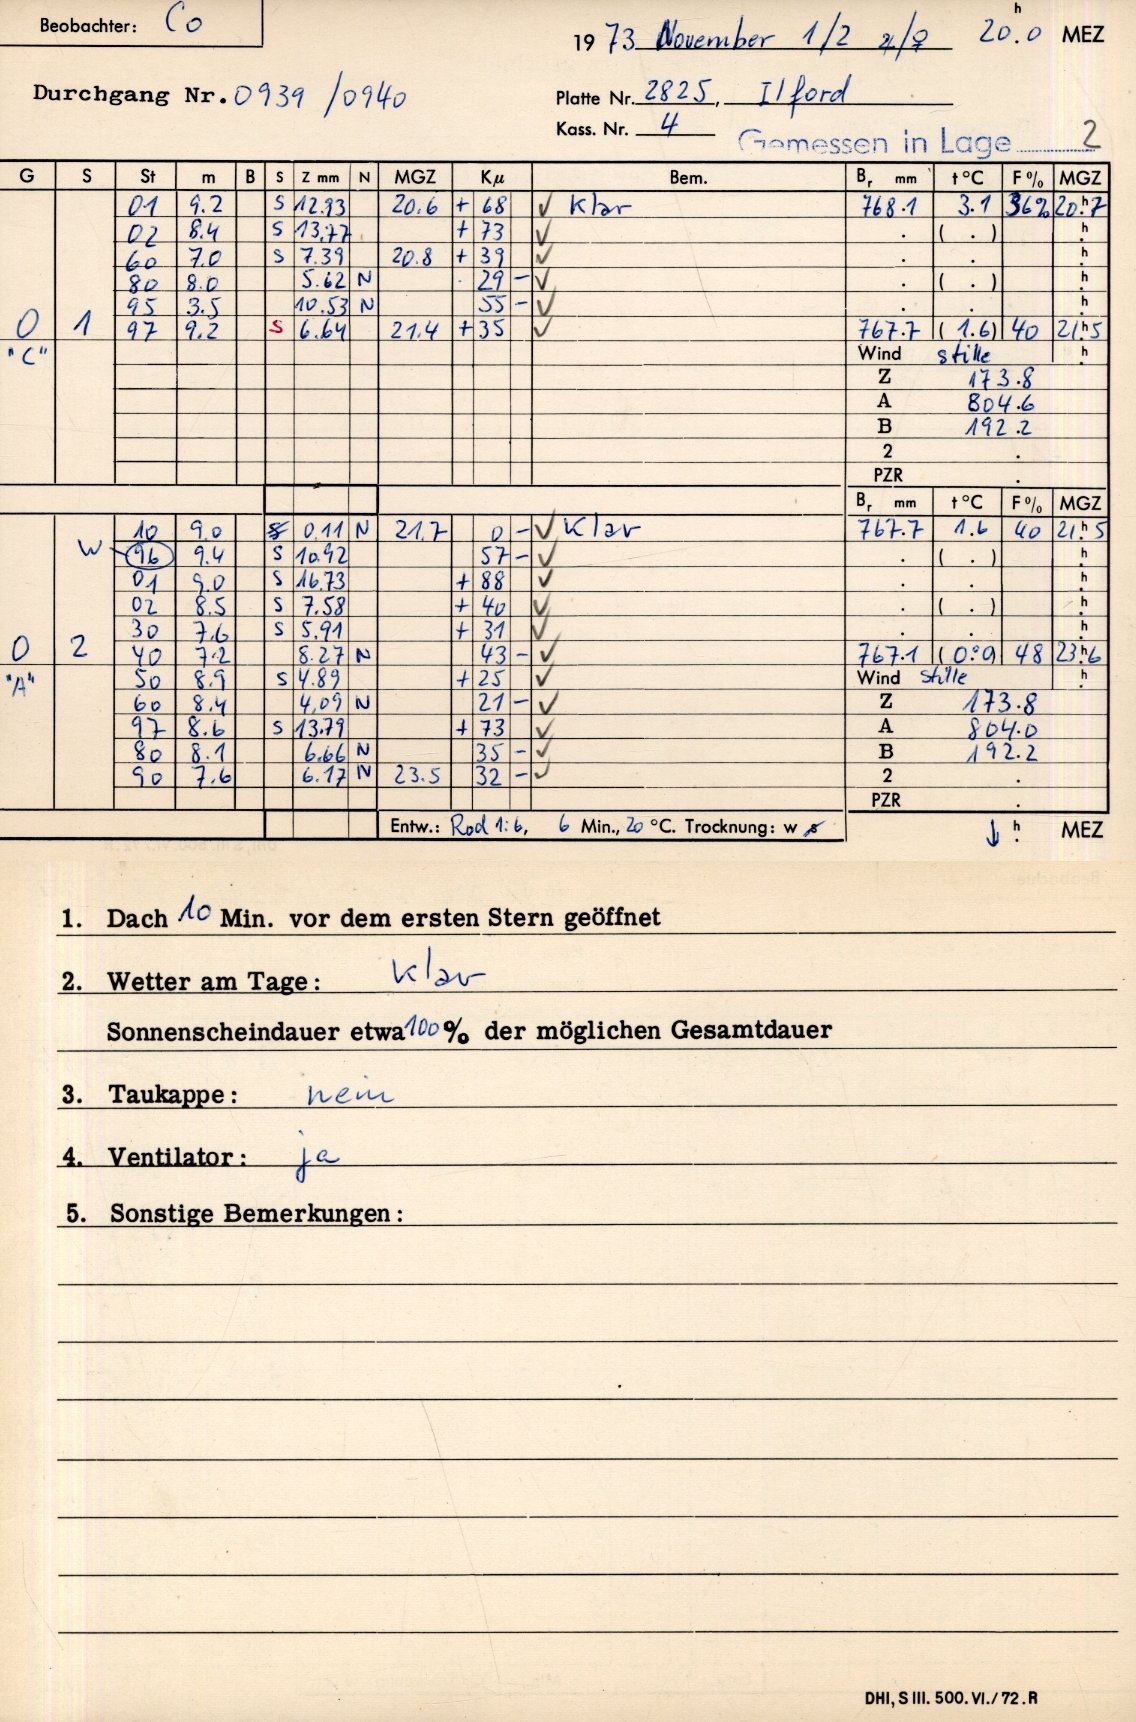 Beobachter: Co
1973 November 1/2 ♃/♀ 20.0 h MEZ
Durchgang Nr. 0939/0940
Platte Nr. 2825, Ilford
Kass. Nr. 4
Gemessen in Lage 2
G S St m B S Z mm N MGZ Kμ Bem. Br mm t °C F % MGZ
01 9.2 S 12.93 20.6 + 68 ✓ Klar 768.1 3.1 36% 20.h7
02 8.4 S 13.77 + 73 ✓ . ( . ) h.
60 7.0 S 7.39 20.8 + 39 ✓ . . h.
80 8.0 5.62 N 29 – ✓ . ( . ) h.
95 3.5 10.53 N 55 – ✓ . . h.
0 1 97 9.2 S 6.64 21.4 + 35 ✓ 767.7 ( 1.6) 40 21.h5
"C" Wind stille h.
Z 173.8
A 804.6
B 192.2
2 .
PZR .
Br mm t °C F % MGZ
10 9.0 0.11 N 21.7 0 – ✓ Klar 767.7 1.6 40 21.h5
W 96 9.4 S 10.92 57 – ✓ . ( . ) h.
01 9.0 S 16.73 + 88 ✓ . . h.
02 8.5 S 7.58 + 40 ✓ . ( . ) h.
30 7.6 S 5.91 + 31 ✓ . . h.
0 2 40 7.2 8.27 N 43 – ✓ 767.1 ( 0.9) 48 23.h6
"A" 50 8.9 S 4.89 + 25 ✓ Wind stille h.
60 8.4 4.09 N 21 – ✓ Z 173.8
97 8.6 S 13.79 + 73 ✓ A 804.0
80 8.1 6.66 N 35 – ✓ B 192.2
90 7.6 6.17 N 23.5 32 – ✓ 2 .
PZR .
Entw.: Rod 1:6, 6 Min., 20 °C. Trocknung: w s ↓ h. MEZ
1. Dach 10 Min. vor dem ersten Stern geöffnet
2. Wetter am Tage: klar
Sonnenscheindauer etwa 100% der möglichen Gesamtdauer
3. Taukappe: nein
4. Ventilator: ja
5. Sonstige Bemerkungen:
DHI, S III. 500. VI./72. R